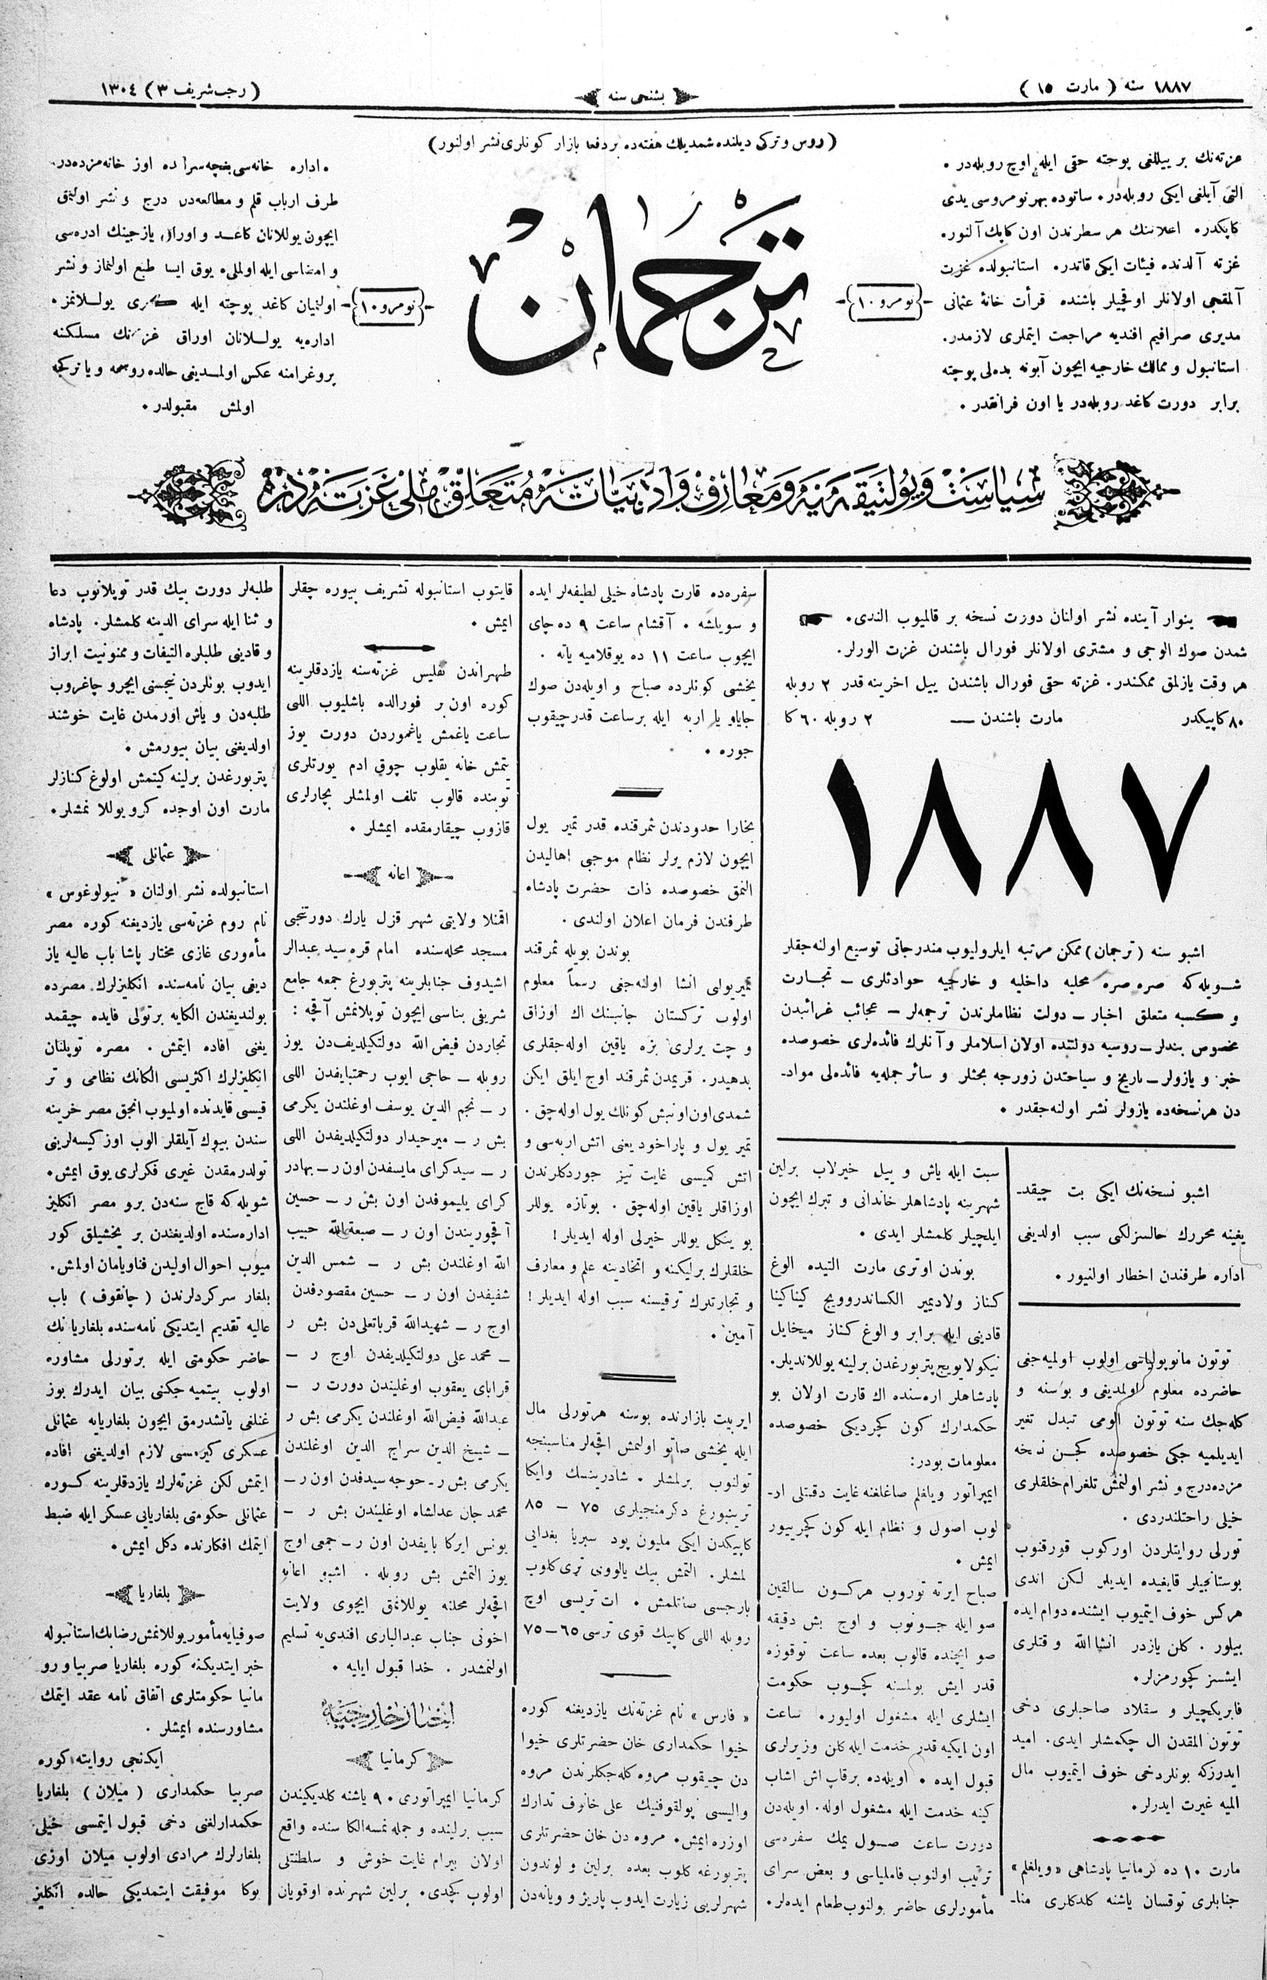 ١٨٨٧ سنه ( مارت ١٥ )
بشنجى سنه
( رجب شريف ٣ ) ١٣٠٤
(روس و تركى ديلنده شمديلك هفته‌ده بر دفعا بازار كونلرى نشر اولنور)
غزته‌نك بر ييللغى پوچته حقى ايله اوچ روبله‌در .
التى آيلغى ايكى روبله‌در . ساتوده بهر نومروسى يدى
كاپكدر . اعلاننك هر سطرندن اون كاپك آلنور .
غزته آلدنده فيئات ايكى قاتدر . استانبولده غزت
آلمقجى اولانلر اوقچيلر باشنده قرأت خانۀ عثمانى
مديرى صرافيم افنديه مراجعت ايتملرى لازمدر .
استانبول و ممالك خارجيه ايچون آبونه بدەلى پوچته
برابر دورت كاغد روبله‌در يا اون فرانقدر .
نومرو ١٠
ترجمان
نومرو ١٠
• اداره خانه‌سى بغچه سراده اوز خانه مزده‌در
طرف ارباب قلم و مطالعه‌دن درج و نشر اولنمق
ايچون يوللانان كاغد و اوراق يازجينك ادره‌سى
و امضاسى ايله اولملى . يوق ايسا طبع اولنماز و نشر
اولنميان كاغد پوچته ايله كرى يوللانمز .
اداره‌يه يوللانان اوراق غزته‌نك مسلكنه
پروغرامنه عكس اولمديغى حالده روسچه و يا تركجه
اولمش مقبولدر .
سياست و پولتيقه‌يه و معارف و ادبياته متعلق ملى غزته‌در
ينوار آينده نشر اولنان دورت نسخه بر قالميوب الندى .
شمدن صوك الوجى و مشترى اولانلر فورال باشندن غزت الورلر .
هر وقت يازلمق ممكندر . غزته حقى فورال باشندن ييل اخرينه قدر ٢ روبله
٨٠ كاپيكدر مارت باشندن — ٢ روبله ٦٠ كا
١٨٨٧
اشبو سنه (ترجمان) ممكن مرتبه ايلروليوب مندرجاتى توسيع اولنه‌جقلر
شويله‌كه صره صره محليه داخليه و خارجيه حوادثلرى — تجارت
و كسبه متعلق اخبار — دولت نظاملرندن ترجمه‌لر — عجائب غرائبدن
مخصوص بندلر — روسيه دولتنده اولان اسلاملر و آنلرك فائده‌لرى خصوصده
خبر و يازولر — تاريخ و سياحتدن زورجه بحثلر و سائر جمله‌يه فائده‌لى مواد-
دن هر نسخه‌ده يازولر نشر اولنه‌جقدر .
اشبو نسخه‌نك ايكى بت چيقد-
يغينه محررك حالسزلكى سبب اولديغى
اداره طرفندن اخطار اولنيور .
توتون مانوپولياسى اولوب اولميه‌جغى
حاضرده معلوم اولمديغى و بو سنه و
كله‌جك سنه توتون الومى تبدل تغير
ايديلميه جكى خصوصده كچن نسخه
مزده درج و نشر اولنمش تلغرام خلقلرى
خيلى راحتلندردى .
تورلى روايتلردن اوركوب قورقنوب
بوستانجيلر قايغيده ايديلر لكن اندى
هركس خوف ايتميوب ايشنده دوام ايده
بيلور . كلن يازدر انشا الله و قتلرى
ايشسز كچورمزلر .
فابريكچيلر و سقلاد صاحبلرى دخى
توتون المقدن ال چكمشلر ايدى . اميد
ايدرزكه بونلر دخى خوف ايتميوب مال
الميه غيرت ايدرلر .
مارت ١٠ ده كرمانيا پادشاهى «ويلغلم»
جنابلرى توقسان ياشنه كلدكلرى منا-
سبت ايله ياش و ييل خيرلاب برلين
شهرينه پادشاهلر خاندانى و تبرك ايچون
ايلچيلر كلمشلر ايدى .
بوندن اوترى مارت التيده الوغ
كناز ولاديمير الكساندروويج كيناكينا
قادينى ايله برابر و الوغ كناز ميخايل
نيكولايويج پتربورغدن برلينه يوللانديلر .
پادشاهلر اره‌سنده اك قارت اولان بو
حكمدارك كون كچرديكى خصوصده
معلومات بودر :
ايمپراتور ويلغلم صاغلغنه غايت دقتلى ار-
لوب اصول و نظام ايله كون كچريور
ايمش .
صباح ايرته توروب هركون سالقين
صو ايله جونوب و اوچ بش دقيقه
صو ايچنده قالوب بعده ساعت توقوزه
قدر ايش بولمسنه كچوب حكومت
ايشلرى ايله مشغول اوليور . ساعت
اون ايكيه قدر خدمت ايله كلن وزيرلرى
قبول ايده . اويله‌ده بر قاپ اش اشاب
كنه خدمت ايله مشغول اوله . اويله‌دن
دورت ساعت صول يمك سفره‌سى
ترتيب اولنوب فاملياسى و بعض سراى
مأمورلرى حاضر بولنوب طعام ايده‌لر .
سفره‌ده قارت پادشاه خيلى لطيفه‌لر ايده
و سويلشه . آقشام ساعت ٩ ده چاى
ايچوب ساعت ١١ ده يوقلاميه ياته .
يخشى كونلرده صباح و اويله‌دن صوك
جاياو يا اربه ايله بر ساعت قدر چيقوب
جوره .
بخارا حدودندن ثمرقنده قدر تمير يول
ايچون لازم يرلر نظام موجبى اهاليدن
النمق خصوصده ذات حضرت پادشاه
طرفندن فرمان اعلان اولندى .
بوندن بويله ثمرقند
تميريولى انشا اوله‌جغى رسماً معلوم
اولوب تركستان جانبينك اك اوزاق
و چت يرلرى بزه ياقين اوله‌جقلرى
بدهيدر . قريمدن ثمرقند اوچ ايلق ايكن
شمدى اون اونبش كونلك يول اوله‌چق .
تمير يول و پاراخود يعنى اتش اربه‌سى و
اتش كميسى غايت تيز جوردكلرندن
اوزاقلر ياقين اوله‌چق . بوتازه يوللر
بو ينكل يوللر خيرلى اوله ايديلر !
خلقلرك برليكنه و اتحادينه علم و معارف
و تجارتلرك ترقيسنه سبب اوله ايديلر !
آمين .
ايربيت بازارنده بوسنه هر تورلى مال
ايله يخشى صاتو اولنمش اقچه‌لر مناسبنجه
تولنوب برلمشلر . شادرينسك وايكا
ترينبورغ دكرمنجيلرى ٧٥ — ٨٥
كاپيكدن ايكى مليون پود سبريا بغدايى
لمشلر . التمش بيك يالوونى ترى كلوب
بارجسى صاتلمش . ات تريسى اوچ
روبله اللى كاپيك قوى ترسى ٦٥–٧٥
«فارس» نام غزته‌نك يازديغنه كوره
خيوا حكمدارى خان حضرتلرى خيوا
دن چيقوب مروه كله‌جكلرندن مروه
واليسى پولقوفنيك على خانوف تدارك
اوزره ايمش . مروه دن خان حضرتلرى
پتربورغه كلوب بعده برلين و لوندون
شهرلريى زيارت ايدوب پاريژ و ويانه‌دن
قايتوب استانبوله تشريف بيوره چقلر
ايمش .
طهراندن تفليس غزته‌سنه يازدقلرينه
كوره اون بر فورالده باشليوب اللى
ساعت ياغمش ياغموردن دورت يوز
يتمش خانه يقلوب چوق ادم يورتلرى
توبنده قالوب تلف اولمشلر بچارلرى
قازوب چيقارمقده ايمشلر .
اعانه
اقمنلا ولايتى شهر قزل يارك دورتنجى
مسجد محله‌سنده امام قره سيد عبدالر
اشيدوف جنابلرينه پتربورغ جمعه جامع
شريفى بناسى ايچون توپلانمش آقچه :
تجاردن فيض الله دولتكيلديف‌دن يوز
روبله — حاجى ايوب رحمتيايفدن اللى
ر — نجم الدين يوسف اوغلندن يكرمى
بش ر — ميرحيدار دولتكيلديفدن اللى
ر — سيد كراى مايسفدن اون ر — بهادر
كراى يليموفدن اون بش ر — حسين
آقچوريندن اون ر — صبغة الله حبيب
الله اوغلندن بش ر — شمس الدين
شفيغدن اون ر — حسين مقصودفدن
اوج ر — شهيدالله قربانعلى‌دن بش ر
— محمد على دولتكيلديفدن اوج ر —
قراباى يعقوب اوغليندن دورت ر —
عبدالله فيض الله اوغلندن يكرمى بش ر
— شيخ الدين سراج الدين اوغلندن
يكرمى بش ر — خوجه سيدفدن اون ر —
محمد جان عدلشاه اوغليندن بش ر —
يونس ايركا بايفدن اون ر — جمعى اوج
يوز التمش بش روبله . اشبو اعانه
اقچه‌لر محلنه يوللانمق ايچوى ولايت
اخونى جناب عبدالبارى افندى‌يه تسليم
اولنمشدر . خدا قبول ايليه .
اخبار خارجيه
كرمانيا
كرمانيا ايمپراتورى ٩٠ ياشنه كلديكيندن
سبب برلينده و جمله نمسه الكا سنده واقع
اولان بيرام غايت خوش و سلطنتلى
اولوب كچدى . برلين شهرنده اوقويان
طلبه‌لر دورت بيك قدر توپلانوب دعا
و ثنا ايله سراى الدينه كلمشلر . پادشاه
و قادينى طلبلره التيفات و ممنونيت ابراز
ايدوب بونلردن نيجسنى ايچرو چاغروب
طلبه‌دن و ياش اورمدن غايت خوشند
اولديغنى بيان بيورمش .
پتربورغدن برلينه كيتمش اولوغ كنازلر
مارت اون اوجده كرو يوللا نمشلر .
عثمانلى
استانبولده نشر اولنان «نيولوغوس»
نام روم غزته‌سى يازديغنه كوره مصر
مأمورى غازى مختار پاشا باب عاليه ياز
ديغى بيان نامه‌سنده انكليزلرك مصرده
بولنديغندن الكايه برتولى فايده چيقمد
يغنى افاده ايتمش . مصره توپلنان
انكليزلرك اكثريسى الكانك نظامى و تر
قيسى قايدنده اولميوب انجق مصر خزينه
سندن بيوك آيلقلر الوب اوز كيسه‌لرينى
تولدرمقدن غيرى فكرلرى يوق ايمش .
شويله‌كه قاچ سنه‌دن برو مصر انكليز
اداره‌سنده اولديغندن بر يخشيلق كور
ميوب احوال اوليدن فناويامان اولمش .
بلغار سركردلرندن (چانقوف) باب
عاليه تقديم ايتديكى نامه‌سنده بلغاريا نك
حاضر حكومتى ايله برتورلى مشاوره
اولوب بيتميه جكنى بيان ايدرك بوز
غنلغى ياتشدرمق ايچون بلغاريايه عثمانلى
عسكرى كيرمسى لازم اولديغنى افاده
ايتمش لكن غزته‌لرك يازدقلرينه كوره
عثمانلى حكومتى بلغاريايى عسكر ايله ضبط
ايتمك افكارنده دكل ايمش .
بلغاريا
صوفيايه مأمور يوللانمش رضا بك استانبوله
خبر ايتديكنه كوره بلغاريا صربيا و رو
مانيا حكومتلرى اتفاق نامه عقد ايتمك
مشاورسنده ايمشلر .
ايكنجى روايته كوره
صربيا حكمدارى (ميلان) بلغاريا
حكمدارلغنى دخى قبول ايتمسى خيلى
بلغارلرك مرادى اولوب ميلان اوزى
بوكا موفيقت ايتمديكى حالده انكليز